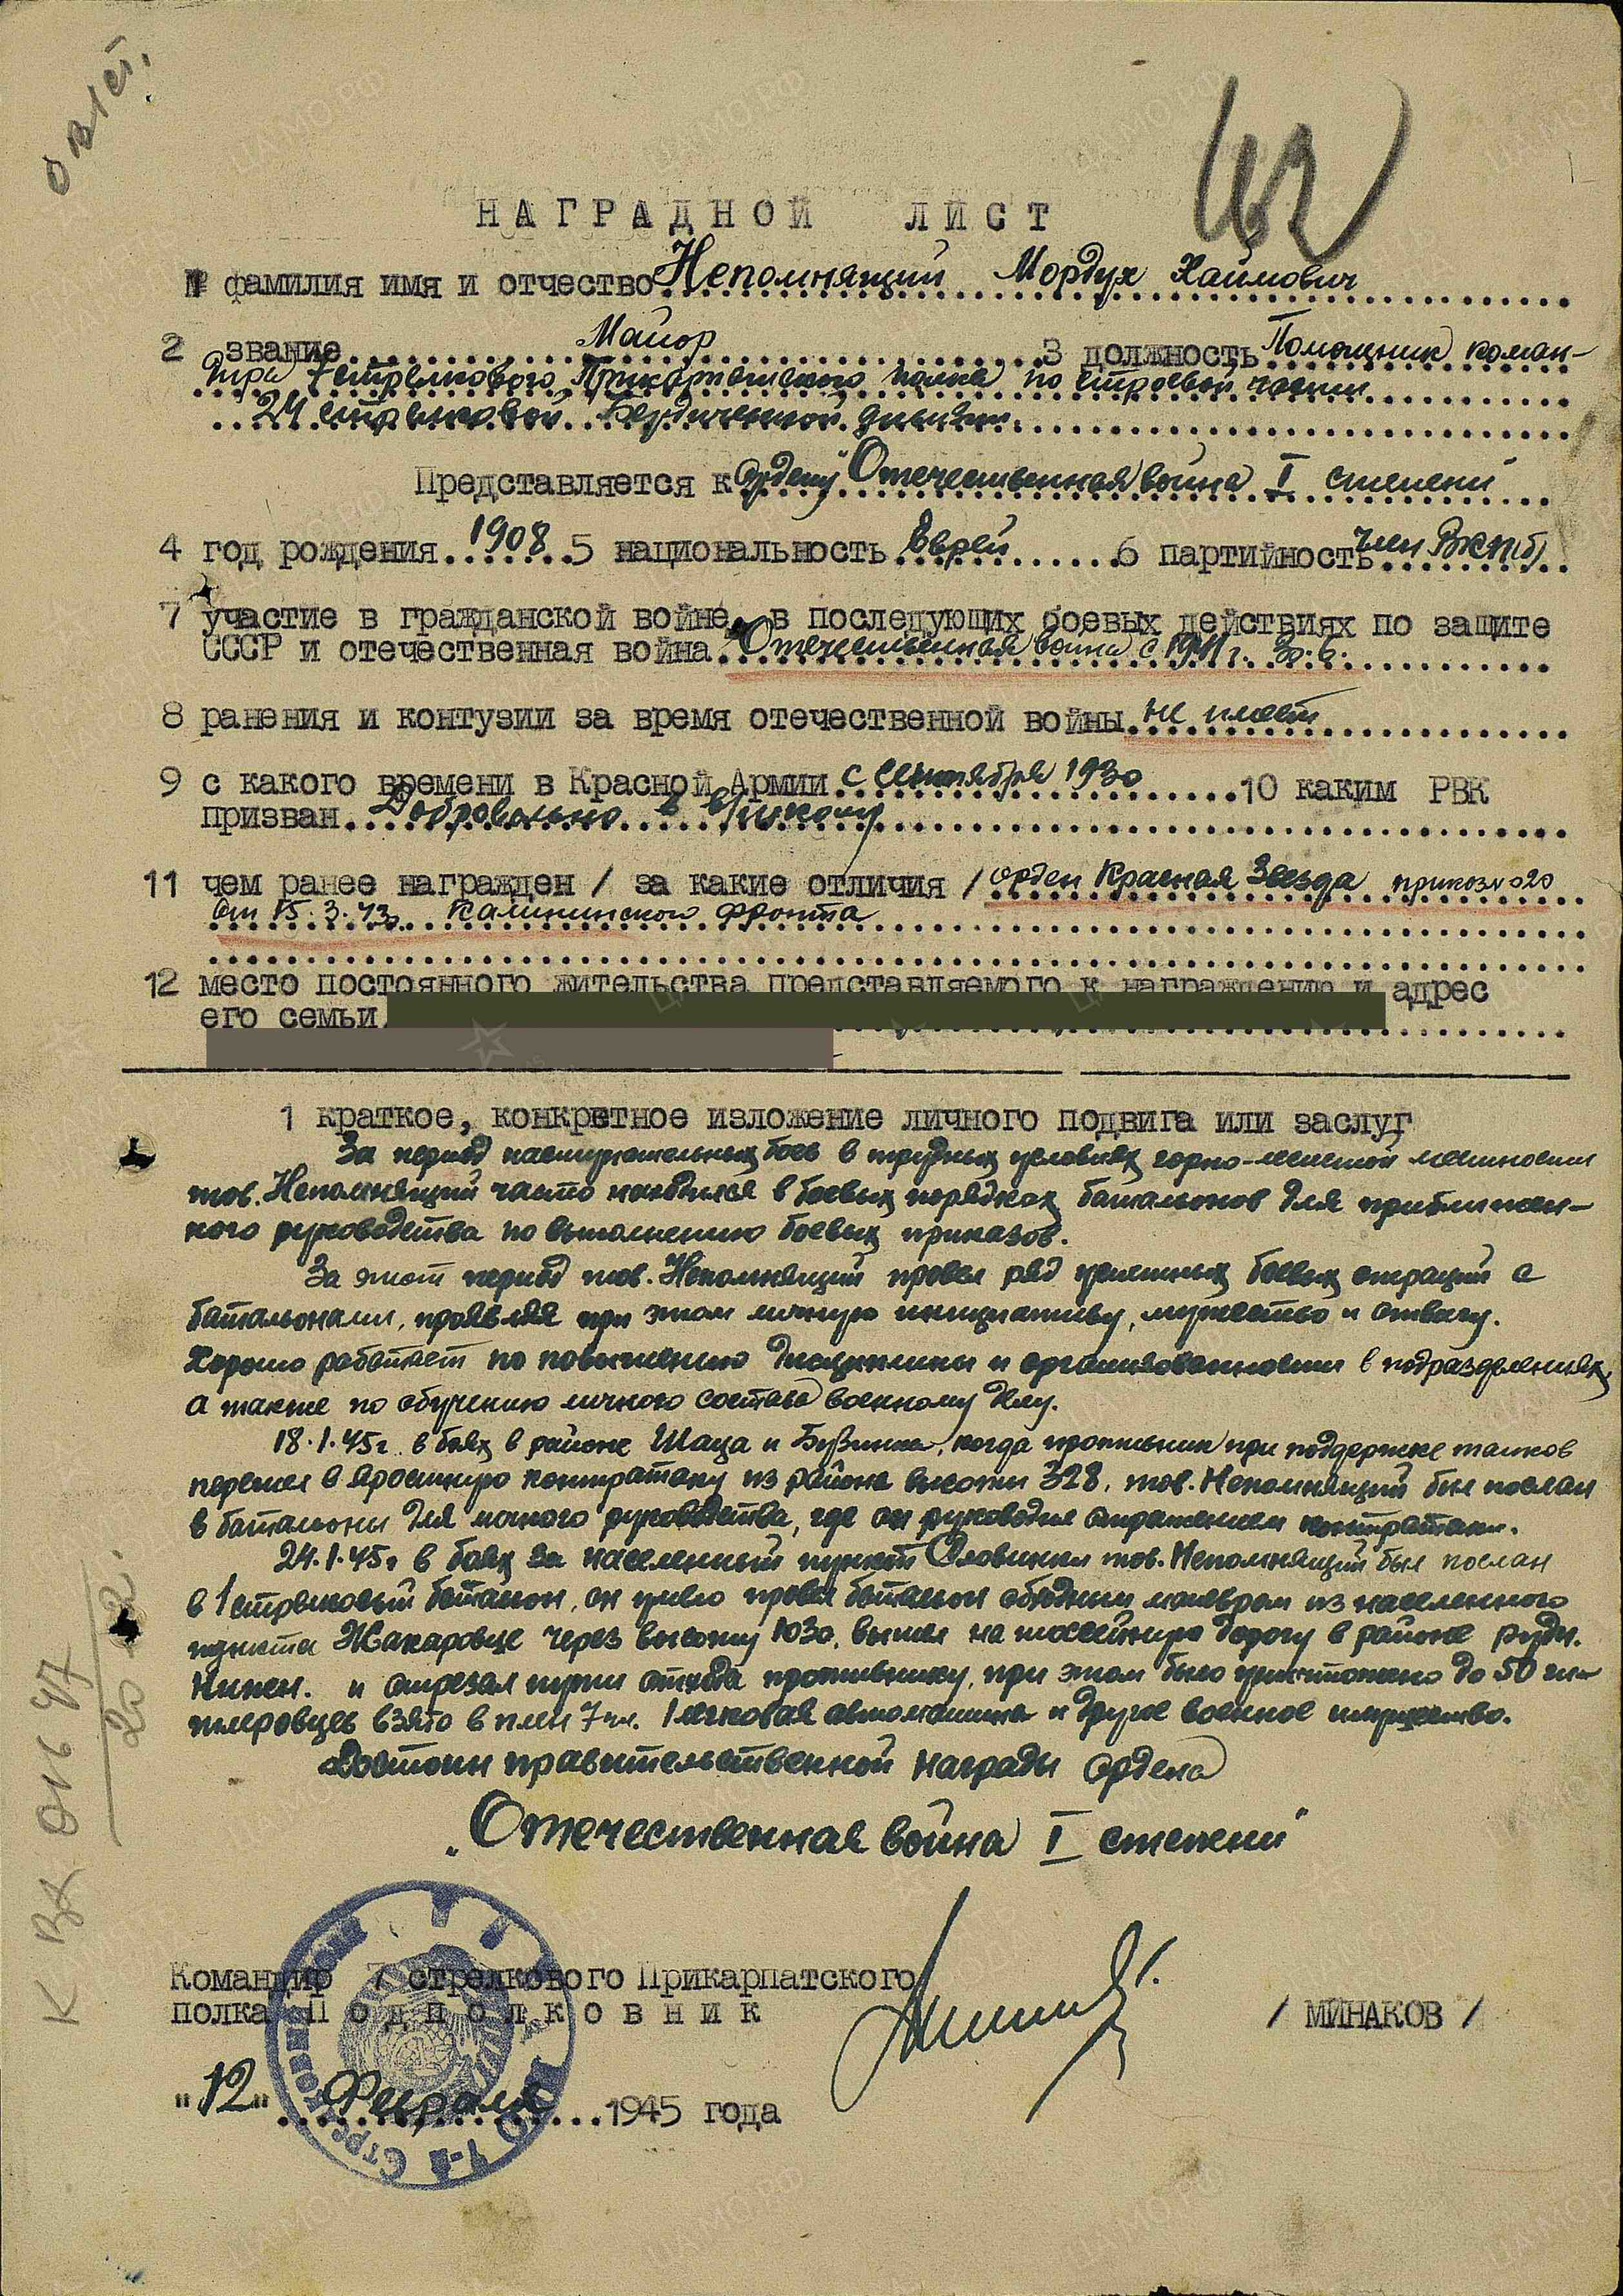 НАГРАДНОЙ ЛИСТ
1 фамилия имя и отчество Непомнящий Мордух Хаимович
2 звание Майор 3 должность Помощник коман-
дира 7 стрелкового Прикарпатского полка по строевой части
24 стрелковой Бердичевской дивизии.
Представляется к ордену "Отечественная война I степени"
4 год рождения 1908 5 национальность Еврей 6 партийность член ВКП(б)
7 участие в гражданской войне, в последующих боевых действиях по защите
СССР и отечественная война. Отечественная война с 1941 г.
8 ранения и контузии за время отечественной войны не имеет
9 с какого времени в Красной Армии с сентября 1930 10 каким РВК
призван Добровольно в в/школу
11 чем ранее награжден / за какие отличия / орден Красная Звезда приказ №020
от 15.3.43г. Калининского фронта
12 место постоянного жительства представляемого к награждению и адрес
его семьи
1 краткое, конкретное изложение личного подвига или заслуг
За период наступательных боев в трудных условиях горно-лесистой местности
тов. Непомнящий часто находился в боевых порядках батальонов для приближен-
ного руководства по выполнению боевых приказов.
За этот период тов. Непомнящий провел ряд успешных боевых операций с
батальонами, проявляя при этом личную инициативу, мужество и отвагу.
Хорошо работает по повышению дисциплины и организованности в подразделениях,
а также по обучению личного состава военному делу.
18.1.45г. в боях в районе Шаца и Бузинка, когда противник при поддержке танков
перешел в яростную контратаку из района высоты 328, тов. Непомнящий был послан
в батальоны для личного руководства, где он руководил отражением контратаки.
24.1.45г в боях за населенный пункт Словинки тов. Непомнящий был послан
в 1 стрелковый батальон, он умело провел батальон обходным маневром из населенного
пункта Жакаровце через высоту 1030, вышел на шоссейную дорогу в районе рудн.
Нижн. и отрезал пути отхода противнику, при этом было уничтожено до 50 ги-
тлеровцев взято в плен 7 чл. 1 легковая автомашина и другое военное имущество.
Достоин правительственной награды ордена
"Отечественная война I степени"
Командир 7 стрелкового Прикарпатского
полка Подполковник / МИНАКОВ /
"12" Февраля 1945 года